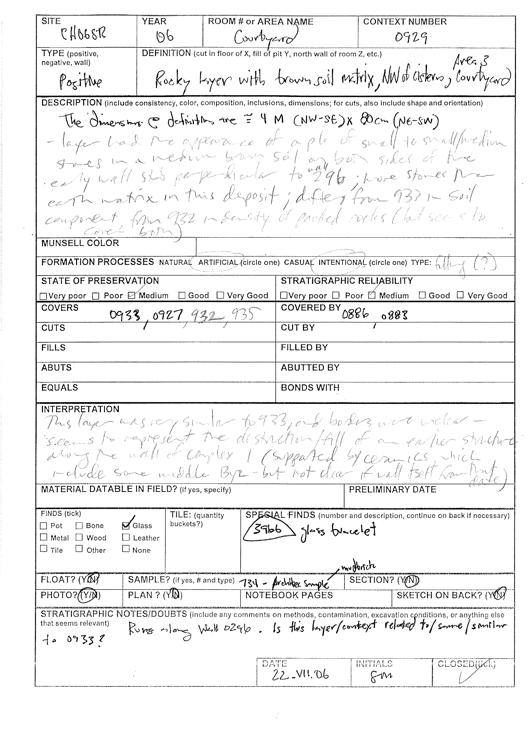 SITE CH06SR YEAR 06 ROOM # or AREA NAME Courtyard CONTEXT NUMBER 0929
TYPE (positive, negative, wall) Positive DEFINITION (cut in floor of X, fill of pit Y, north wall of room Z, etc.) Area 3
Rocky layer with brown soil matrix, NW of cisterns, Courtyard
DESCRIPTION (include consistency, color, composition, inclusions, dimensions; for cuts, also include shape and orientation)
The dimensions @ definition are ≅ 4 M (NW-SE) x 80cm (NE-SW)
- layer had the appearance of a pile of small to small/medium
stones in a medium brown soil on both sides of the
early wall perpendicular to wall 296; more stones than
earth matrix in this deposit; differs from 933 in soil
component from 932 in density of packed rocks (but seems to
cover both)
MUNSELL COLOR
FORMATION PROCESSES NATURAL ARTIFICIAL (circle one) CASUAL INTENTIONAL (circle one) TYPE: filling (?)
STATE OF PRESERVATION STRATIGRAPHIC RELIABILITY
Very poor Poor Medium Good Very Good Very poor Poor Medium Good Very Good
COVERS 0933, 0927, 932, 935 COVERED BY 0886, 0883
CUTS CUT BY
FILLS FILLED BY
ABUTS ABUTTED BY
EQUALS BONDS WITH
INTERPRETATION
This layer was very similar to 933, and borders were unclear -
seems to represent the destruction/fill of an earlier structure
along the wall of complex 1 (supported by ceramics, which
include some middle Byz - but not clear if wall itself from that
date)
MATERIAL DATABLE IN FIELD? (if yes, specify) PRELIMINARY DATE
FINDS (tick) TILE: (quantity buckets?) SPECIAL FINDS (number and description, continue on back if necessary)
Pot Bone Glass 3966 glass bracelet
Metal Wood Leather
Tile Other None
mudbrick
FLOAT? (Y/N) SAMPLE? (if yes, # and type) 734 - Architec sample SECTION? (Y/N)
PHOTO? (Y/N) PLAN? (Y/N) NOTEBOOK PAGES SKETCH ON BACK? (Y/N)
STRATIGRAPHIC NOTES/DOUBTS (include any comments on methods, contamination, excavation conditions, or anything else
that seems relevant) Runs along Wall 0296. Is this layer/context related to/same/similar
to 0933?
DATE 22-VII.06 INITIALS gm CLOSED(tick)